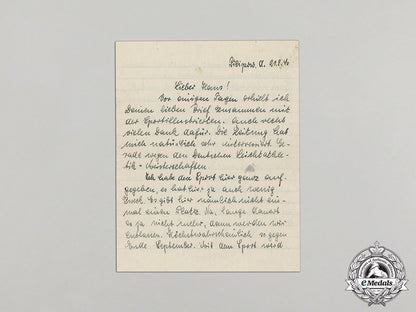 d. 21.8.46
Lieber Hans!
Vor einigen Tagen erhielt ich
Deinen lieben Brief zusammen mit
der Sportillustrierten. Auch recht
vielen Dank dafür. Die Zeitung hat
mich natürlich sehr interessiert. Ge-
rade wegen den Deutschen Leichtathle-
tik-Meisterschaften
Ich habe den Sport hier ganz auf-
gegeben, es hat hier ja auch wenig
Zweck. Es gibt hier nämlich nicht ein-
mal einen Platz. Na, lange dauert
es ja nicht mehr, dann werden wir
entlassen. Höchstwahrscheinlich so gegen
Ende September. Mit dem Sport wird
eMedals